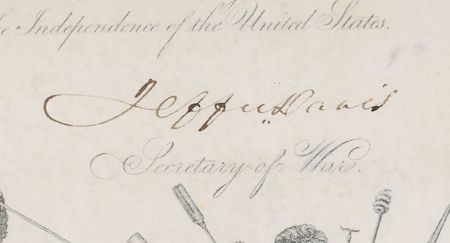 he Independence of the United States.
Jeffn Davis
Secretary of War.